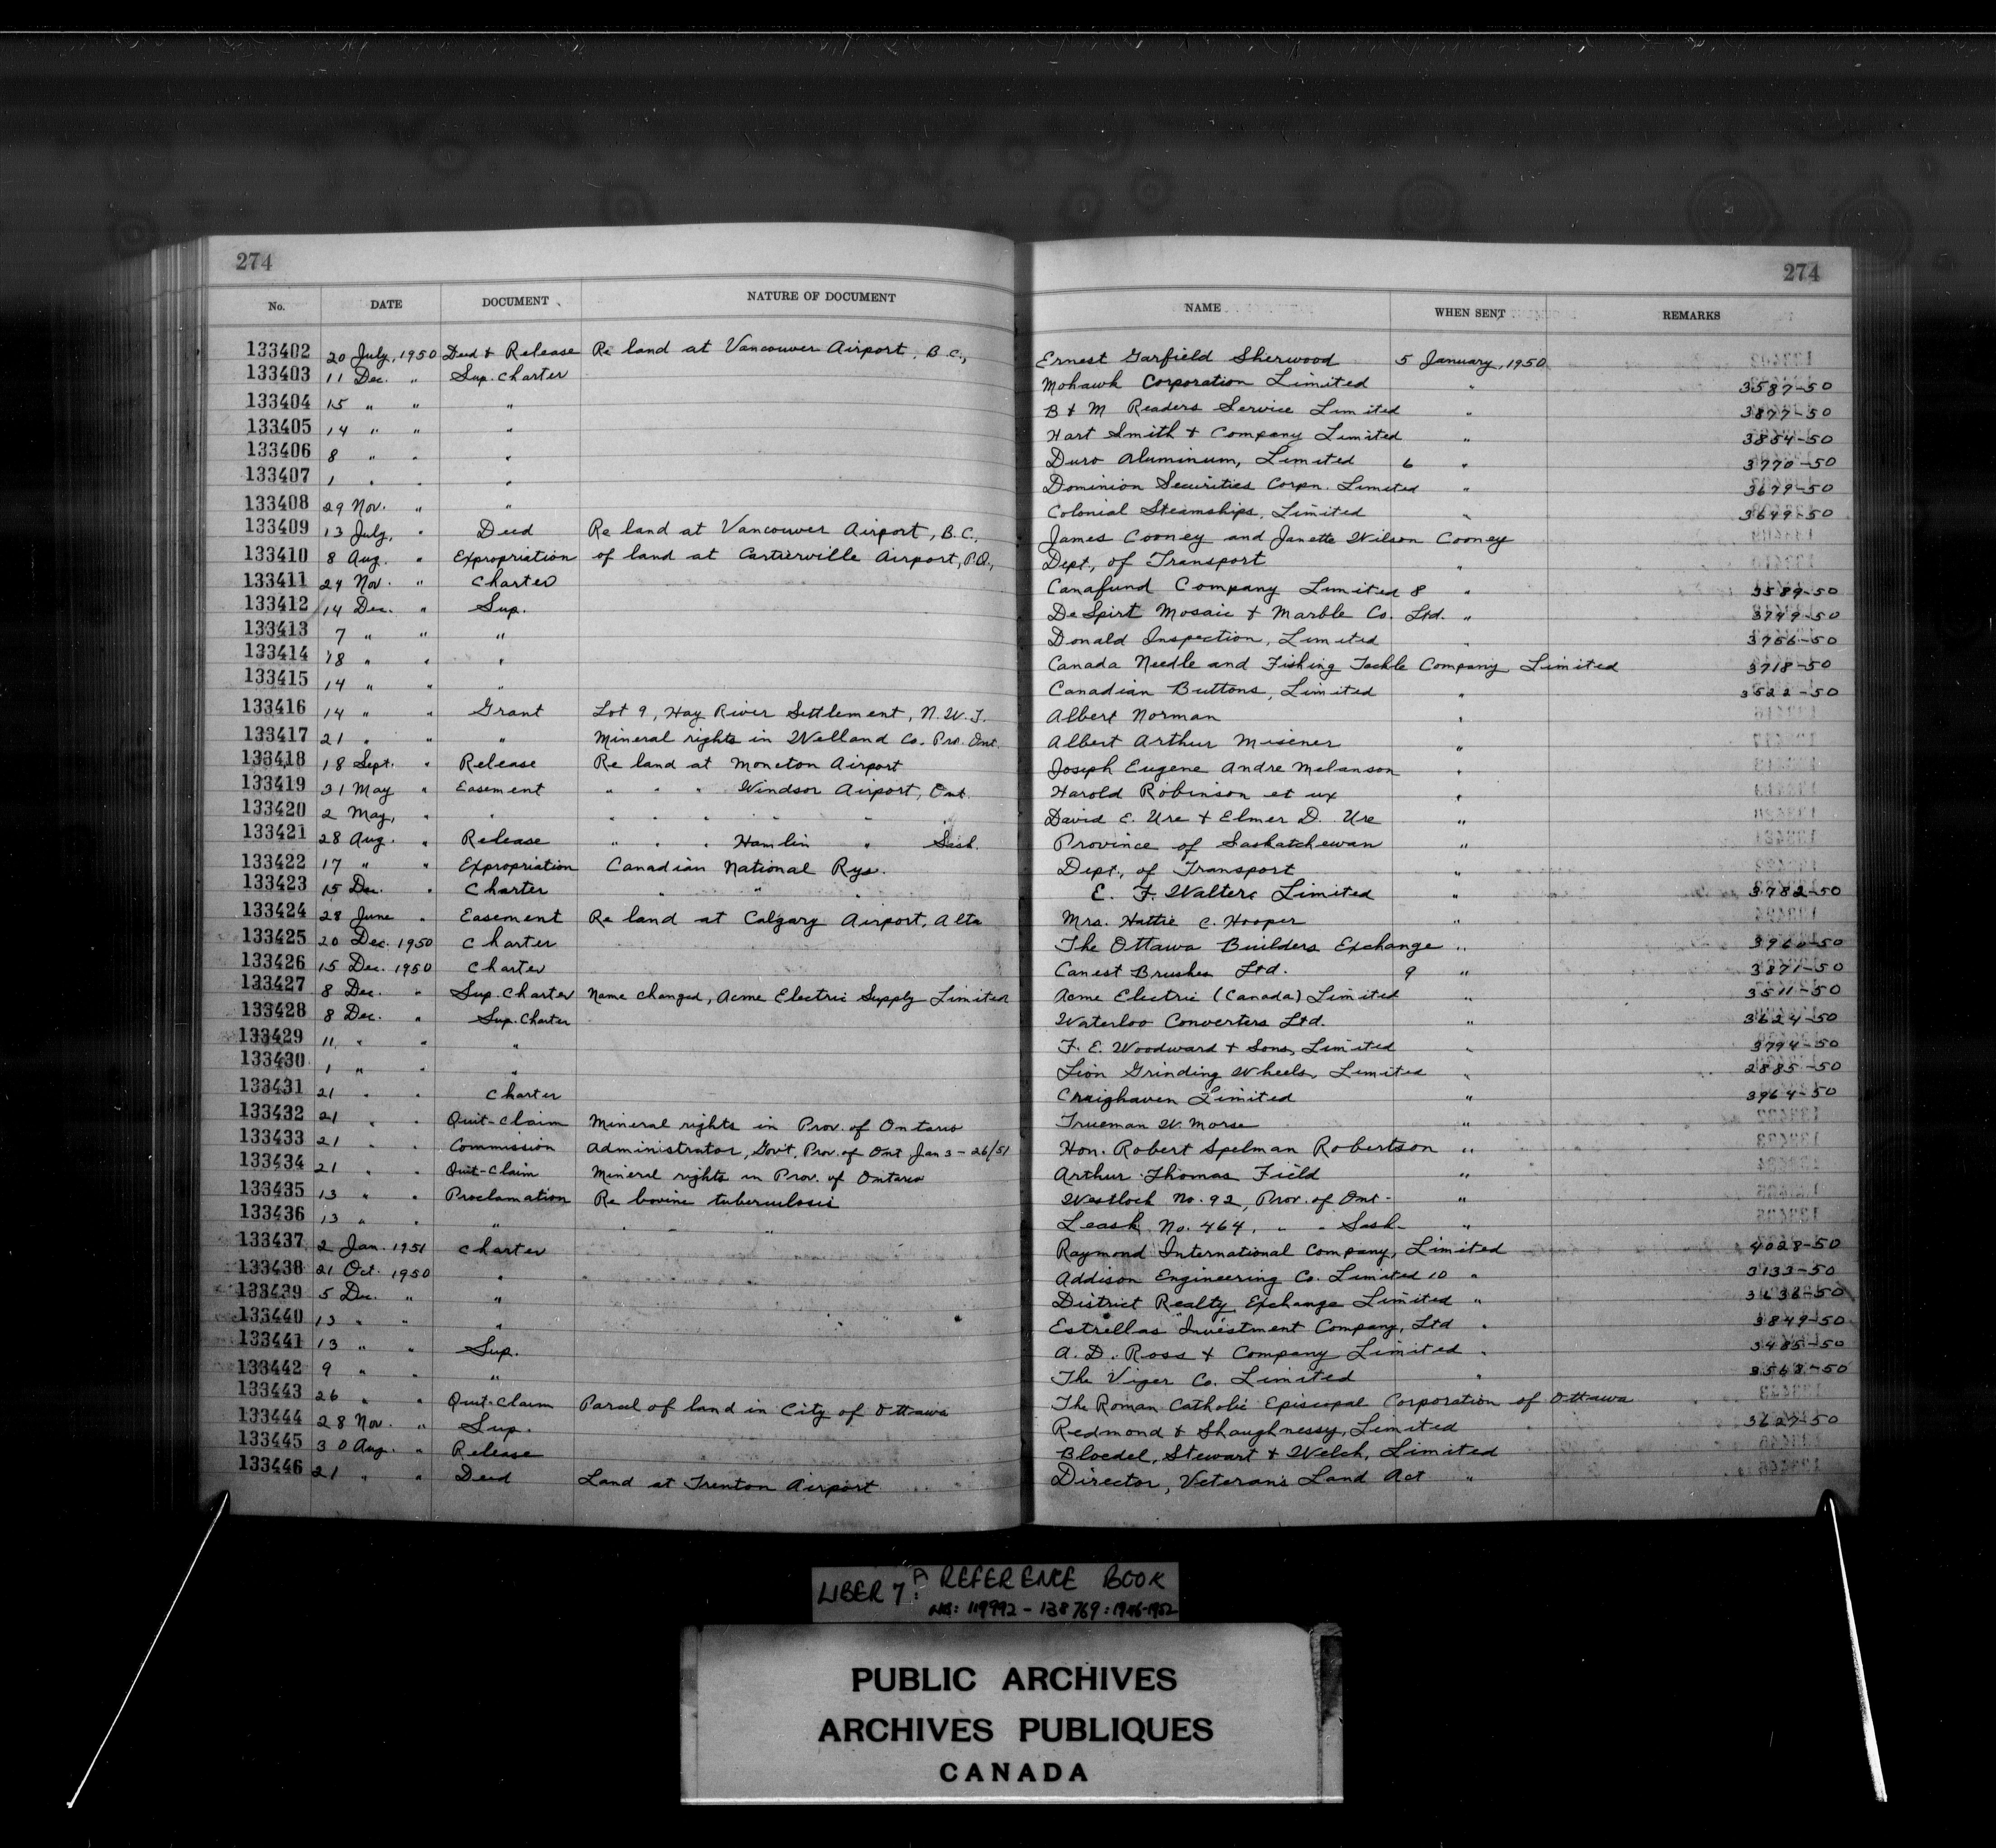 274 274
No. DATE DOCUMENT NATURE OF DOCUMENT NAME WHEN SENT REMARKS
133402 20 July, 1950 Deed & Release Re land at Vancouver Airport, B.C., Ernest Garfield Sherwood 5 January, 1950
133403 11 Dec. " Sup. Charter Mohawk Corporation Limited " 3587-50
133404 15 " " " B & M Readers Service Limited " 3877-50
133405 14 " " " Hart Smith & Company Limited " 3854-50
133406 8 " " " Duro Aluminum, Limited 6 " 3770-50
133407 1 " " " Dominion Securities Corpn. Limited " 3679-50
133408 29 Nov. " " Colonial Steamships, Limited " 3649-50
133409 13 July, " Deed Re land at Vancouver Airport, B.C., James Cooney and Janette Wilson Cooney
133410 8 Aug. " Expropriation of land at Cartierville Airport, P.Q., Dept., of Transport "
133411 24 Nov. " Charter Canafund Company Limited 8 " 3589-50
133412 14 Dec. " Sup. De Spirt Mosaic & Marble Co. Ltd. " 3749-50
133413 7 " " " Donald Inspection, Limited " 3756-50
133414 18 " " " Canada Needle and Fishing Tackle Company Limited 3718-50
133415 14 " " " Canadian Buttons, Limited " 3522-50
133416 14 " " Grant Lot 9, Hay River Settlement, N.W.T. Albert Norman "
133417 21 " " " Mineral rights in Welland Co. Pro. Ont. Albert Arthur Misener "
133418 18 Sept. " Release Re land at Moncton Airport Joseph Eugene Andre Melanson "
133419 31 May " Easement " " " Windsor Airport, Ont. Harold Robinson et ux "
133420 2 May, " " " " " " " " David E. Ure & Elmer D. Ure "
133421 28 Aug. " Release " " " Hamlin " Sask. Province of Saskatchewan "
133422 17 " " Expropriation Canadian National Rys. Dept., of Transport "
133423 15 Dec. " Charter " " " E. F. Walters Limited " 3782-50
133424 28 June " Easement Re land at Calgary Airport, Alta Mrs. Hattie C. Hooper "
133425 20 Dec. 1950 Charter The Ottawa Builders Exchange " 3960-50
133426 15 Dec. 1950 Charter Canest Brushes Ltd. 9 " 3871-50
133427 8 Dec. " Sup. Charter Name changed, Acme Electric Supply Limited Acme Electric (Canada) Limited " 3511-50
133428 8 Dec. " Sup. Charter Waterloo Converters Ltd. " 3624-50
133429 11 " " " F. E. Woodward & Sons, Limited " 3794-50
133430 1 " " " Lion Grinding Wheels, Limited " 2885-50
133431 21 " " Charter Craighaven Limited " 3964-50
133432 21 " " Quit-Claim Mineral rights in Prov. of Ontario Trueman W. Morse "
133433 21 " " Commission Administrator, Gov't, Prov. of Ont Jan 3-26/51 Hon. Robert Spelman Robertson "
133434 21 " " Quit-Claim Mineral rights in Prov. of Ontario Arthur Thomas Field "
133435 13 " " Proclamation Re bovine tuberculosis Westlock No. 92, Prov. of Ont- "
133436 13 " " " " " Leask No. 464, " " Sask- "
133437 2 Jan. 1951 Charter Raymond International Company, Limited 4028-50
133438 21 Oct. 1950 " Addison Engineering Co. Limited 10 " 3133-50
133439 5 Dec. " " District Realty Exchange Limited " 3636-50
133440 13 " " " Estrellas Investment Company, Ltd " 3849-50
133441 13 " " Sup. A. D. Ross & Company Limited " 3485-50
133442 9 " " " The Viger Co. Limited " 3568-50
133443 26 " " Quit-Claim Parcel of land in City of Ottawa The Roman Catholic Episcopal Corporation of Ottawa
133444 28 Nov. " Sup. Redmond & Shaughnessy, Limited " 3627-50
133445 30 Aug. " Release Bloedel, Stewart & Welch, Limited
133446 21 " " Deed Land at Trenton Airport Director, Veterans Land Act "
LIBER 7: A REFERENCE BOOK
NOS: 119992 - 138769: 1946-1952
PUBLIC ARCHIVES
ARCHIVES PUBLIQUES
CANADA